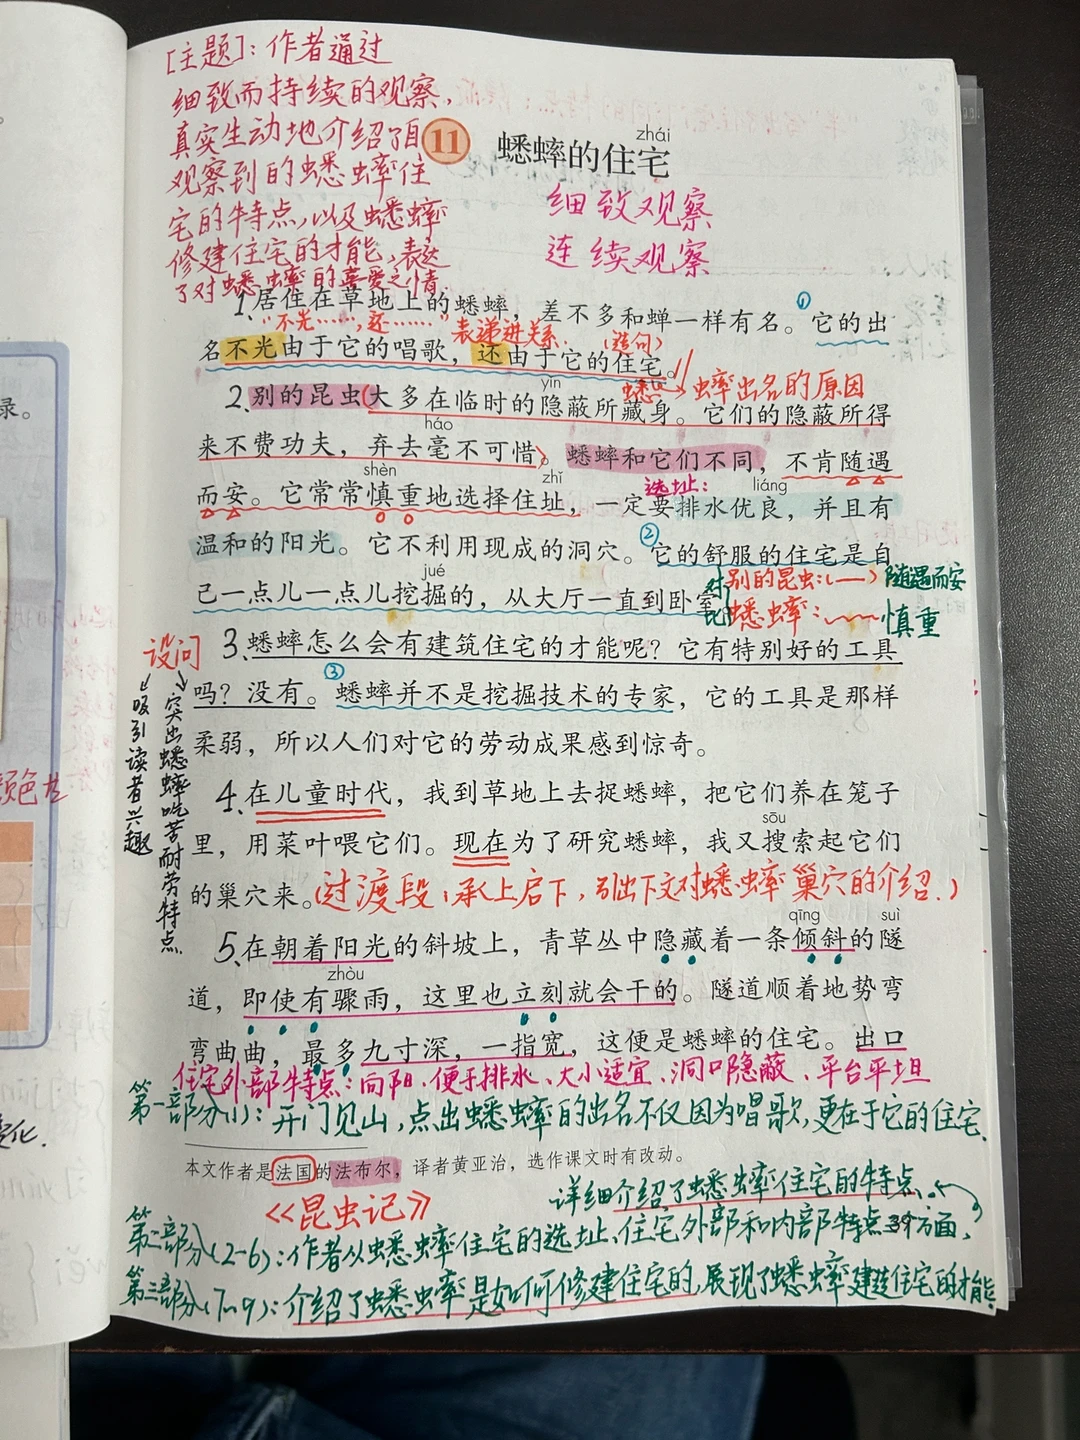 [主题]:作者通过
细致而持续的观察,
真实生动地介绍了自
观察到的蟋蟀住
宅的特点,以及蟋蟀
修建住宅的才能,表达
了对蟋蟀的喜爱之情.
11
zhái
蟋蟀的住宅
细致观察
连续观察
1、居住在草地上的蟋蟀,差不多和蝉一样有名。①它的出
“不光……,还……”表递进关系.(造句)
名不光由于它的唱歌,还由于它的住宅。
蟋蟀出名的原因
yǐn
2、别的昆虫(大多在临时的隐蔽所藏身。它们的隐蔽所得
háo
来不费功夫,弃去毫不可惜)。蟋蟀和它们不同,不肯随遇
shèn zhǐ 选址: liáng
而安。它常常慎重地选择住址,一定要排水优良,并且有
温和的阳光。它不利用现成的洞穴。②它的舒服的住宅是自
jué
对比
别的昆虫:(—)随遇而安
己一点儿一点儿挖掘的,从大厅一直到卧室。
蟋蟀:﹏﹏慎重
设问
3、蟋蟀怎么会有建筑住宅的才能呢?它有特别好的工具
吗?没有。③蟋蟀并不是挖掘技术的专家,它的工具是那样
柔弱,所以人们对它的劳动成果感到惊奇。
突出蟋蟀吃苦耐劳特点
吸引读者兴趣
4、在儿童时代,我到草地上去捉蟋蟀,把它们养在笼子
sōu
里,用菜叶喂它们。现在为了研究蟋蟀,我又搜索起它们
的巢穴来。(过渡段,承上启下,引出下文对蟋蟀巢穴的介绍.)
qīng suì
5、在朝着阳光的斜坡上,青草丛中隐藏着一条倾斜的隧
zhòu
道,即使有骤雨,这里也立刻就会干的。隧道顺着地势弯
弯曲曲,最多九寸深,一指宽,这便是蟋蟀的住宅。出口
住宅外部特点:向阳、便于排水、大小适宜、洞口隐蔽、平台平坦
第一部分(1):开门见山,点出蟋蟀的出名不仅因为唱歌,更在于它的住宅.
本文作者是法国的法布尔,译者黄亚治,选作课文时有改动。
《昆虫记》
详细介绍了蟋蟀住宅的特点.
第二部分(2-6):作者从蟋蟀住宅的选址、住宅外部和内部特点3个方面,
第三部分(7-9):介绍了蟋蟀是如何修建住宅的,展现了蟋蟀建造住宅的才能.
录。
颜色
变化.